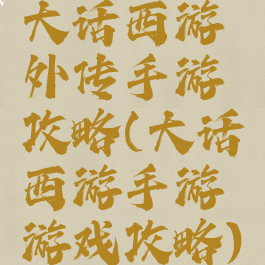 大话西游
外传手游
攻略(大话
西游手游
游戏攻略)